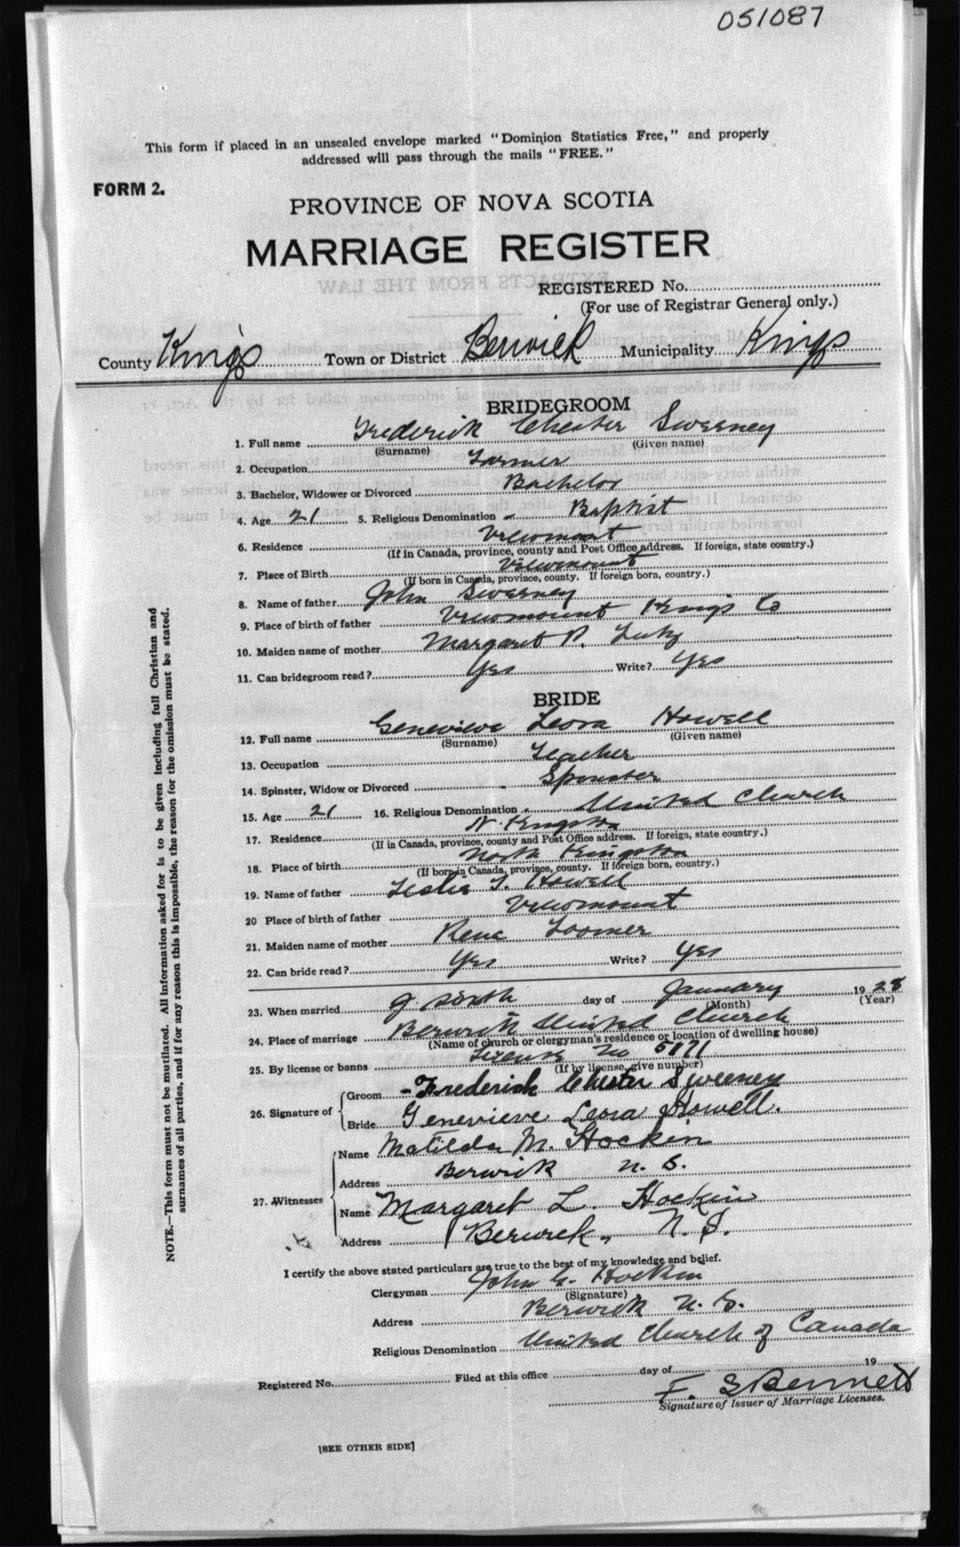 051087
This form if placed in an unsealed envelope marked "Dominion Statistics Free," and properly
addressed will pass through the mails "FREE."
FORM 2.
PROVINCE OF NOVA SCOTIA
MARRIAGE REGISTER
EXTRACTS FROM THE LAW
REGISTERED No.
(For use of Registrar General only.)
County King's Town or District Berwick Municipality Kings
BRIDEGROOM
1. Full name Frederick Chester Sweeney
(Surname) (Given name)
2. Occupation Farmer
3. Bachelor, Widower or Divorced Bachelor
4. Age 21 5. Religious Denomination Baptist
6. Residence Viewmount
(If in Canada, province, county and Post Office address. If foreign, state country.)
7. Place of Birth Viewmount
(If born in Canada, province, county. If foreign born, country.)
8. Name of father John Sweeney
9. Place of birth of father Viewmount Kings Co
10. Maiden name of mother Margaret P. Lutz
11. Can bridegroom read? Yes Write? Yes
BRIDE
12. Full name Genevieve Leora Howell
(Surname) (Given name)
13. Occupation Teacher
14. Spinster, Widow or Divorced Spinster
15. Age 21 16. Religious Denomination United Church
17. Residence N. Kingston
(If in Canada, province, county and Post Office address. If foreign, state country.)
18. Place of birth North Kingston
(If born in Canada, province, county. If foreign born, country.)
19. Name of father Leslie Howell
20 Place of birth of father Viewmount
21. Maiden name of mother Rena Loomer
22. Can bride read? Yes Write? Yes
23. When married sixth day of January 1928
(Month) (Year)
24. Place of marriage Berwick United Church
(Name of church or clergyman's residence or location of dwelling house)
25. By license or banns License No 5171
(If by license, give number)
26. Signature of
Groom Frederick Chester Sweeney
Bride Genevieve Leora Howell.
27. Witnesses
Name Matilda M. Hockin
Address Berwick N. S.
Name Margaret L. Hockin
Address Berwick, N. S.
I certify the above stated particulars are true to the best of my knowledge and belief.
Clergyman John G. Hockin
(Signature)
Address Berwick N. S.
Religious Denomination United Church of Canada
Registered No. Filed at this office day of 19
F. S Bennett
Signature of Issuer of Marriage Licenses.
[SEE OTHER SIDE]
NOTE.—This form must not be mutilated. All information asked for is to be given including full Christian and
surnames of all parties, and if for any reason this is impossible, the reason for the omission must be stated.